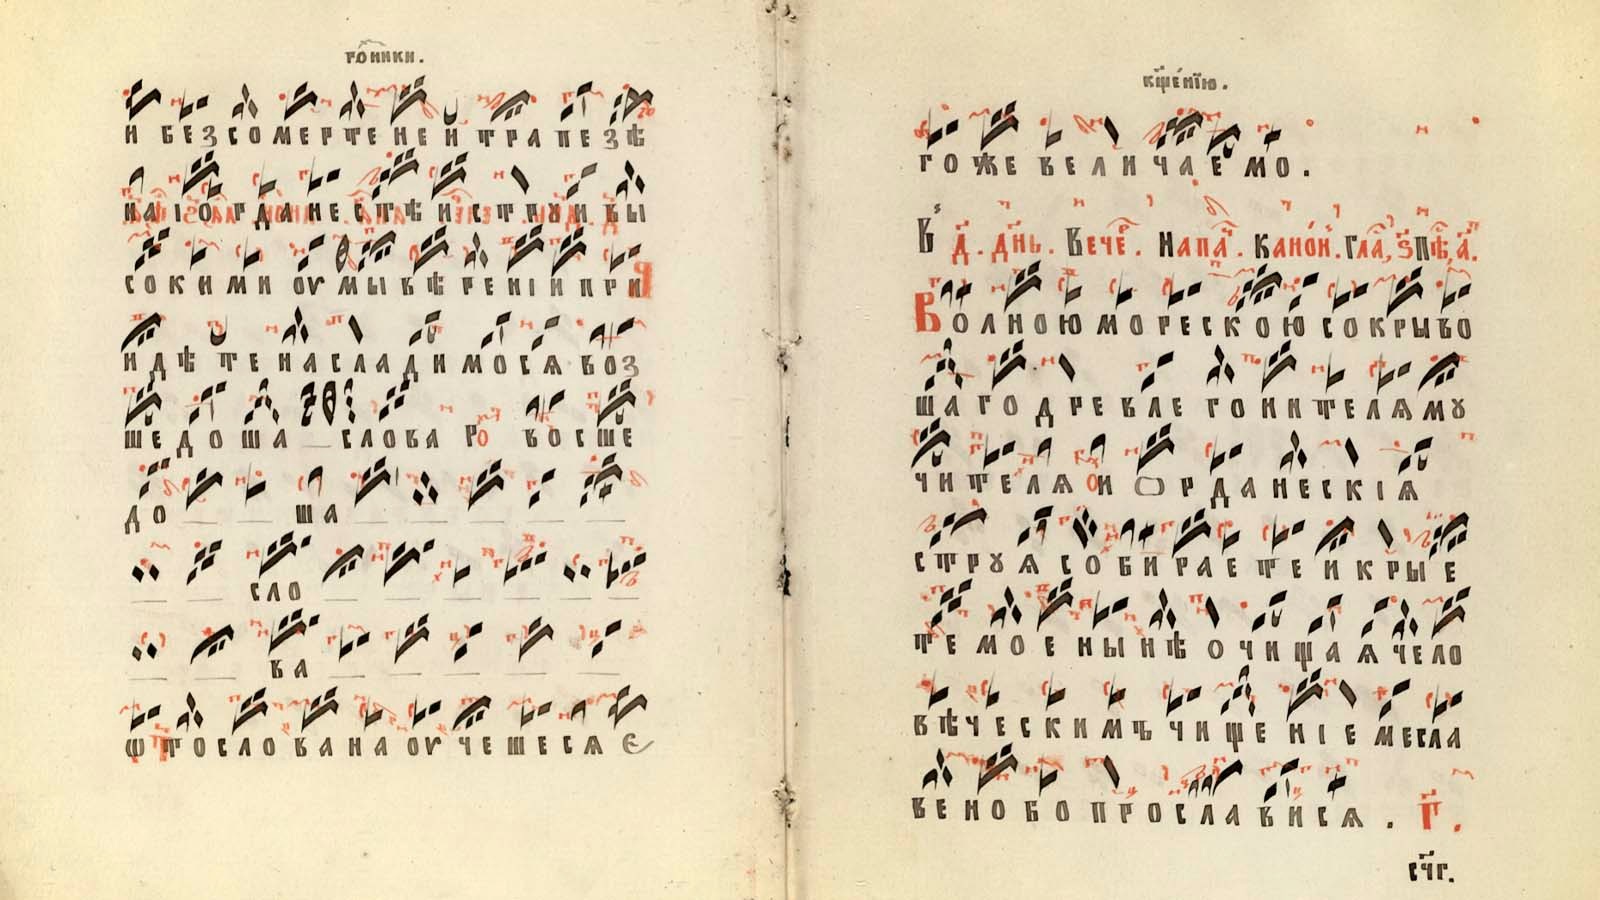 троики.
И БЕЗСОМЕРТЕНЕИ ТРАПЕЗѢ
НАІОРДАНЕСТѢИ СТРꙋИ ВЫ
СОКИМИ ОУМЫ ВѢРЕНІИ ПРИ
ИДѢТЕ НАСЛАДИМОСѦ ВОЗ
ШЕДОША СЛОВА РО ВОСШЕ
ДО ША
СЛО
ВА
ѾТО СЛОВА НАОУЧЕШЕСѦ Є
кщ҃енїю.
ГОЖЕ ВЕЛИЧАЕМО.
Д. дн҃ь. Вече. Напа. Канон. гла, ѕ҃ пѣ, а҃.
ВОЛНОЮ МОРЕСКОЮ СОКРЫВО
ШАГО ДРЕВЛЕ ГОНИТЕЛѦ Мꙋ
ЧИТЕЛѦ И ОРДАНЕСКІѦ
СТРꙋѦ СОБИРАЕТЕ И КРЫЕ
ТЕ МОЕ НЫНѢ ОЧИЩАѦ ЧЕЛО
ВѢЧЕСКИМѢ ЧИЩЕНІЕМЕ СЛА
ВЕНО БО ПРОСЛАВИСѦ. Г҃.
сч҃г.